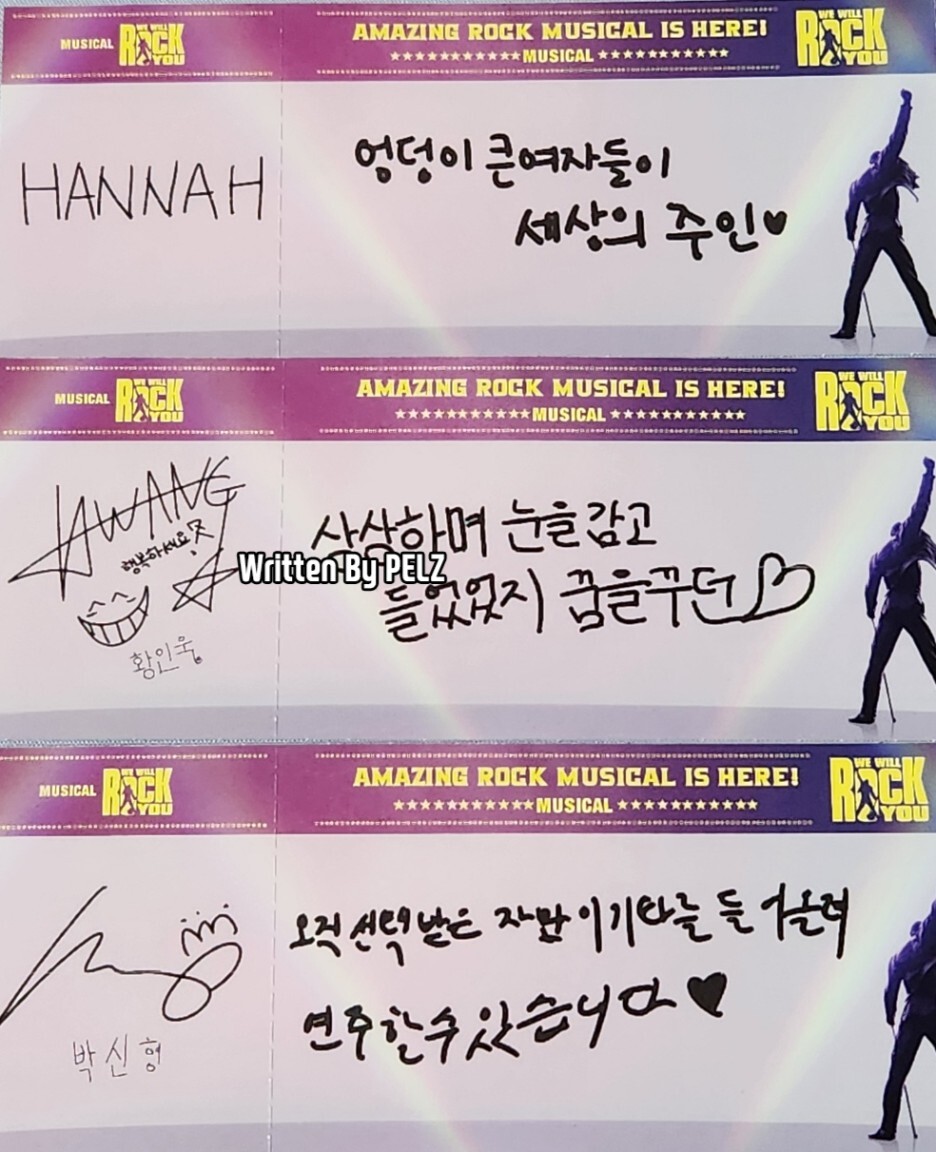 MUSICAL WE WILL ROCK YOU
AMAZING ROCK MUSICAL IS HERE!
★★★★★★★★★★★MUSICAL★★★★★★★★★★★
WE WILL ROCK YOU
HANNAH
엉덩이 큰여자들이
세상의 주인♥
MUSICAL WE WILL ROCK YOU
AMAZING ROCK MUSICAL IS HERE!
★★★★★★★★★★★MUSICAL★★★★★★★★★★★
WE WILL ROCK YOU
HWANG
행복하세요
황인욱
상상하며 눈을감고
들었었지 꿈을꾸던♡
Written By PELZ
MUSICAL WE WILL ROCK YOU
AMAZING ROCK MUSICAL IS HERE!
★★★★★★★★★★★MUSICAL★★★★★★★★★★★
WE WILL ROCK YOU
박신형
오직 선택받은 자만 이 기타를 들어올려
연주할 수 있습니다♥